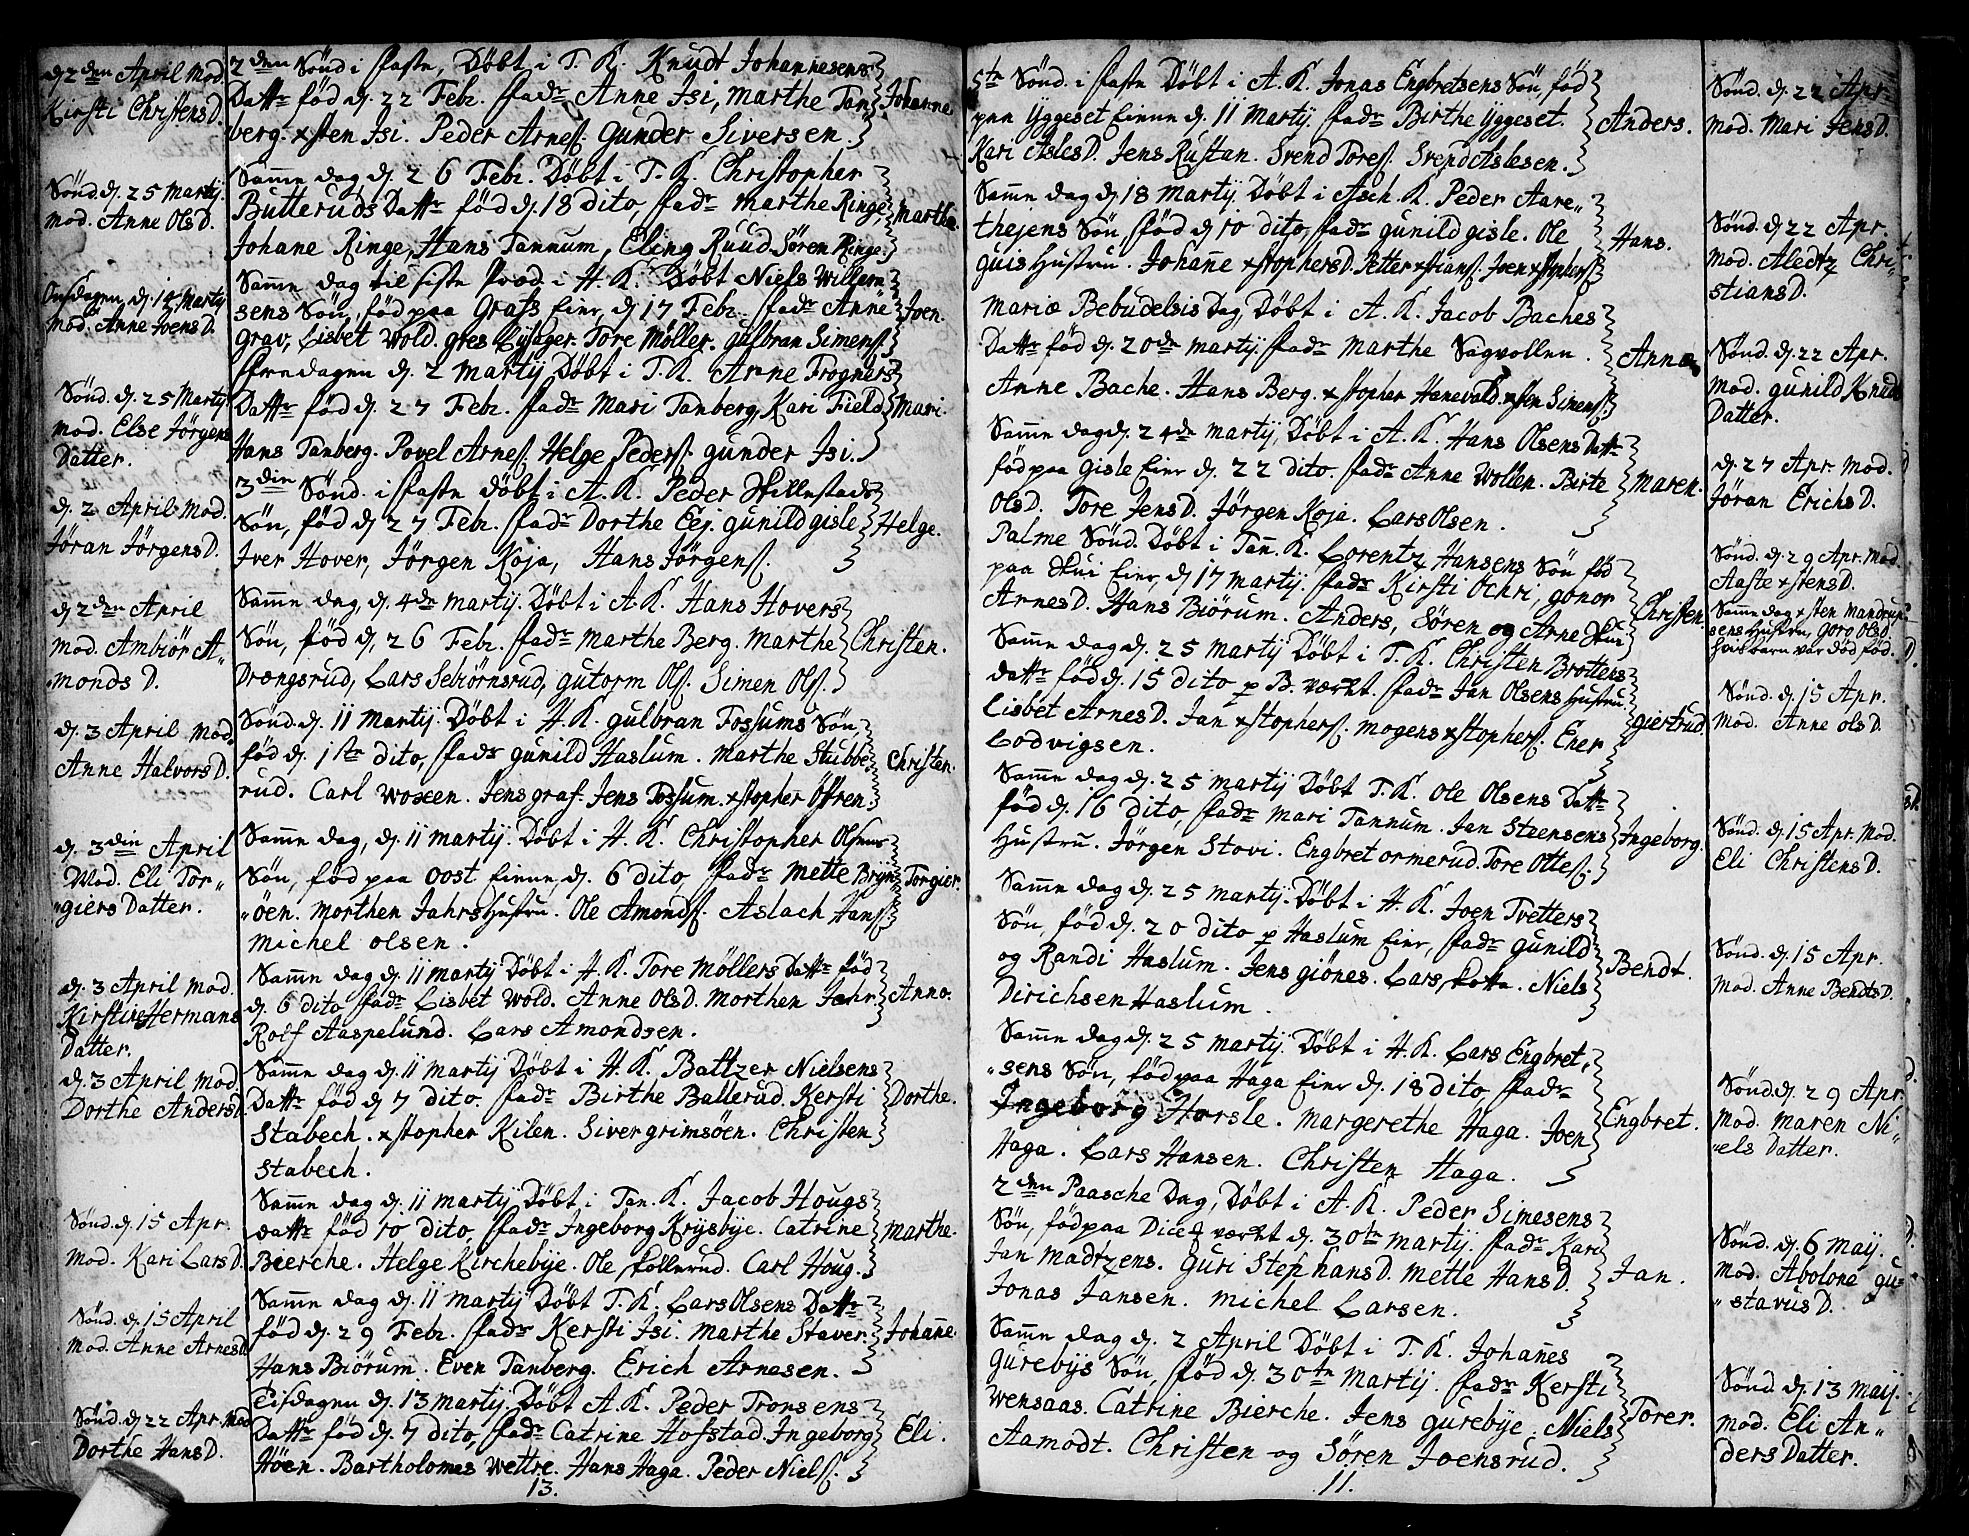 dj 2den April Mod.
Kirsti ChristensD.
Sönd. dj. 25 Martij.
Mod. Anne OlsD.
Onsdagen, dj. 14 Martij
Mod. Anne JoensD.
Sönd. dj. 25 Martij
Mod. Else Jörgens
Datter.
dj. 2 April Mod.
Jöran JörgensD.
dj 2den April
Mod. Ambiör A„
„monds D.
dj. 3 April Mod.
Anne HalvorsD.
dj. 3din April
Mod. Eli Tor„
„giers Datter.
dj. 3 April Mod.
Kirstine Hermans
Datter.
dj. 3 April Mod.
Dorthe AndersD.
Sönd. dj 15 Apr.
Mod. Kari LarsD.
Sönd. dj. 15 April
Mod. Anne ArnesD.
Sönd. dj 22 Apr. Mod
Dorthe HansD.
2den Sönd i faste, Döbt i T. K. Knudt Johannesens
Dattr föd dj. 22 Febr. fadr Anne Isi, Marthe Tan Johanne
berg. xsten Isi. Peder Arneſ. Gunder Siversen.
Samme dag dj. 26 Febr. Döbt i T. K. Christopher
Butteruds Dattr föd dj. 18 dito, fadr Marthe Ringe, Marthe.
Johane Ringe, Hans Tannum, Eling Ruud Sören Ringe.
Samme dag til siste Præd. i H. K. Döbt Niels Willem
sens Sön, föd paa Grafs Eier, dj 17 Febr. fadr Anne Joen.
Grav, Lisbet Wold. Tore Möller. Gulbran Simensſ.
fredagen dj. 2 Martij Döbt i T. K. Arne Frogners
Dattr föd dj. 27 Febr. fadr Mari Tanberg, Kari Field Mari.
Hans Tanberg. Povel Arneſ. Helge Pedersſ. Gunder Isi.
3din Sönd. i faste döbt i A. K. Peder Skillestads
Sön, föd dj 27 Febr. fadr Dorthe Eej. Gunild Gisle Helge.
Iver Hover, Jörgen Koja, Hans Jörgensſ.
Samme dag, dj. 4de Martij. Döbt i A. K. Hans Hovers
Sön, föd dj. 26 Febr. fadr Marthe Berg. Marthe Christen.
Drængsrud, Lars Sebiörnsrud, Gutorm Olsſ. Simen Olsſ.
Sönd. dj. 11 Martij. Döbt i H. K. Gulbran Fossums Sön,
föd dj. 1ste dito, fadr Gunild Haslum. Marthe Stubbe Christen.
rud. Carl Woxen. Jens Graf. Jens Fossum. xstopher Öfren.
Samme dag, dj. 11 Martij. Döbt i H. K. Christopher Olsens
Sön, föd paa Oost Eier, dj. 6 dito, fadr Mette Bryn„ Torgier.
„öen. Morthen Jahrs Hustru. Ole Amondsſ. Aslach Hansſ
Michel Olsen.
Samme dag dj. 11 Martij Döbt i H. K. Tore Möllers Dattr föd
dj. 6 dito fadr Lisbet Wold. Anne OlsD. Morthen Jahr. Anne.
Rolf Aaspelund. Lars Amondsen.
Samme dag dj. 11 Martij Döbt i H. K. Baltzer Nielsens
Dattr föd dj 7 dito. fadr Birthe Ballerud. Kersti Dorthe.
Stabech. xstopher Kilen. Siver Grimsöen. Christen
Stabech.
Samme dag dj. 11 Martij Döbt i Tan. K. Jacob Hougs
Dattr föd 10 dito, fadr Ingeborg Krysbye. Catrine Marthe.
Bierche. Helge Kirchebije. Ole Köllerud. Carl Houg.
Samme dag dj. 11 Martij Döbt T. K. Lars Olsens Dattr
föd dj. 29 Febr. fadr Kersti Isi. Marthe Staver. Johañe.
Hans Biörum. Even Tanberg. Erich Arnesen.
Tisdagen dj. 13 Martij. Döbt A. K. Peder Tronsens
Dattr föd dj. 7 dito, fadr Catrine Hofstad. Ingeborg Eli.
Höen. Bartholomes Wettre. Hans Haga. Peder Nielsſ.
13.
5te Sönd. i faste Döbt i A. K. Jonas Engbretsens Sön, föd
paa Yggeset Eiere dj. 11 Martij. fadr Birthe Yggeset. Anders.
Kari AslesD. Jens Rustan. Svend Toresſ. Svend Aslesen.
Samme dag dj 18 Martij Döbt i Asch. K. Peder Aare„
thejens Sön föd dj 10 dito, fadr Gunild Gisle. Ole Hans.
Guis Hustru. Johañe xstophersD. Petter xstiansſ. Joen xstophersſ
Mariæ Bebudelsis Dag, Döbt i A. K. Jacob Baches
Dattr föd dj. 20de Martij. fadr Marthe Sagvollen. Anne
Anne Bache. Hans Berg. xstopher Hanevold. xsten Simensſ.
Samme dag dj. 24de Martij, Döbt i A. K. Hans Olsens Dattr
föd paa Gisle Eier dj. 22 dito fadr Anne Wollen. Birte Maren.
OlsD. Tore JensD. Jörgen Koja. Lars Olsen.
Palme Sönd. Döbt i Tan. K. Lorentz Hansens Sön föd
paa Skui Eier, dj 17 Martij. fadr Kirsti Ochri, Gonor Christen.
ArnesD. Hans Biörum. Anders, Sören og Arne Skui
Samme dag dj. 25 Martij Döbt i T. K. Christen Brottens
dattr föd dj. 15 dito p B. værket. fadr Jan Olsens Hustru Giertrud.
Lisbet ArnesD. Jan xstophersſ. Mogens xstophersſ. Ener
Lodvigsen.
Samme dag dj. 25 Martij Döbt T. K. Ole Olsens Dattr
föd dj. 16 dito, fadr Mari Tannum. Jan Steensens Ingeborg.
Hustru. Jörgen Stovi. Engbret Ormerud. Tore Ottesſ.
Samme dag dj. 25 Martij. Döbt i H. K. Joen Tvetters
Sön, föd dj. 20 dito p Haslum Eier, fadr Gunild Bendt.
og Randi Haslum. Jens Giönes. Lars Kotta. Niels
Dirichsen Haslum.
Samme dag dj. 25 Martij. Döbt i H. K. Lars Engbret,
„sens Sön, föd paa Haga Eier dj. 18 dito, fadr
Ingeborg Horsle. Margerethe Haga. Joen Engbret.
Haga. Lars Hansen. Christen Haga.
2den Paasche Dag, Döbt i A. K. Peder Simesens
Sön, föd paa Dice værket dj. 30te Martij. fadr Kari Jan.
Jan Madtzens. Guri StephansD. Mette HansD.
Jonas Jansen. Michel Larsen.
Samme dag dj. 2 April Döbt i T. K. Johañes
Gurebijs Sön, föd dj. 30te Martij. fadr Kersti Torer.
Wensaas. Catrine Bierche. Jens Gurebije. Niels
Aamodt. Christen og Sören Joensrud.
11.
Sönd. dj. 22 Apr.
Mod. Mari JensD.
Sönd. dj 22 Apr.
Mod. Aledtz Chri„
stiansD.
Sönd. dj. 22 Apr.
Mod. Gunild Knuds
Datter.
dj. 27 Apr. Mod.
Jöran ErichsD.
Sönd. dj. 29 Apr. Mod
Aaste xstensD.
Samme dag xsten Mandrup
sens Hustru, Goro OlsD.
hvis barn var död föd.
Sönd. dj. 15 Apr.
Mod. Anne OlsD.
Sönd. dj. 15 Apr. Mod.
Eli ChristensD.
Sönd. dj. 15 Apr.
Mod. Anne BendtsD.
Sönd. dj. 29 Apr.
Mod. Maren Ni„
„els Datter.
Sönd. dj. 6 Maij.
Mod. Abolone Gu„
„stavusD.
Sönd. dj. 13 Maij.
Mod. Eli An„
ders Datter.